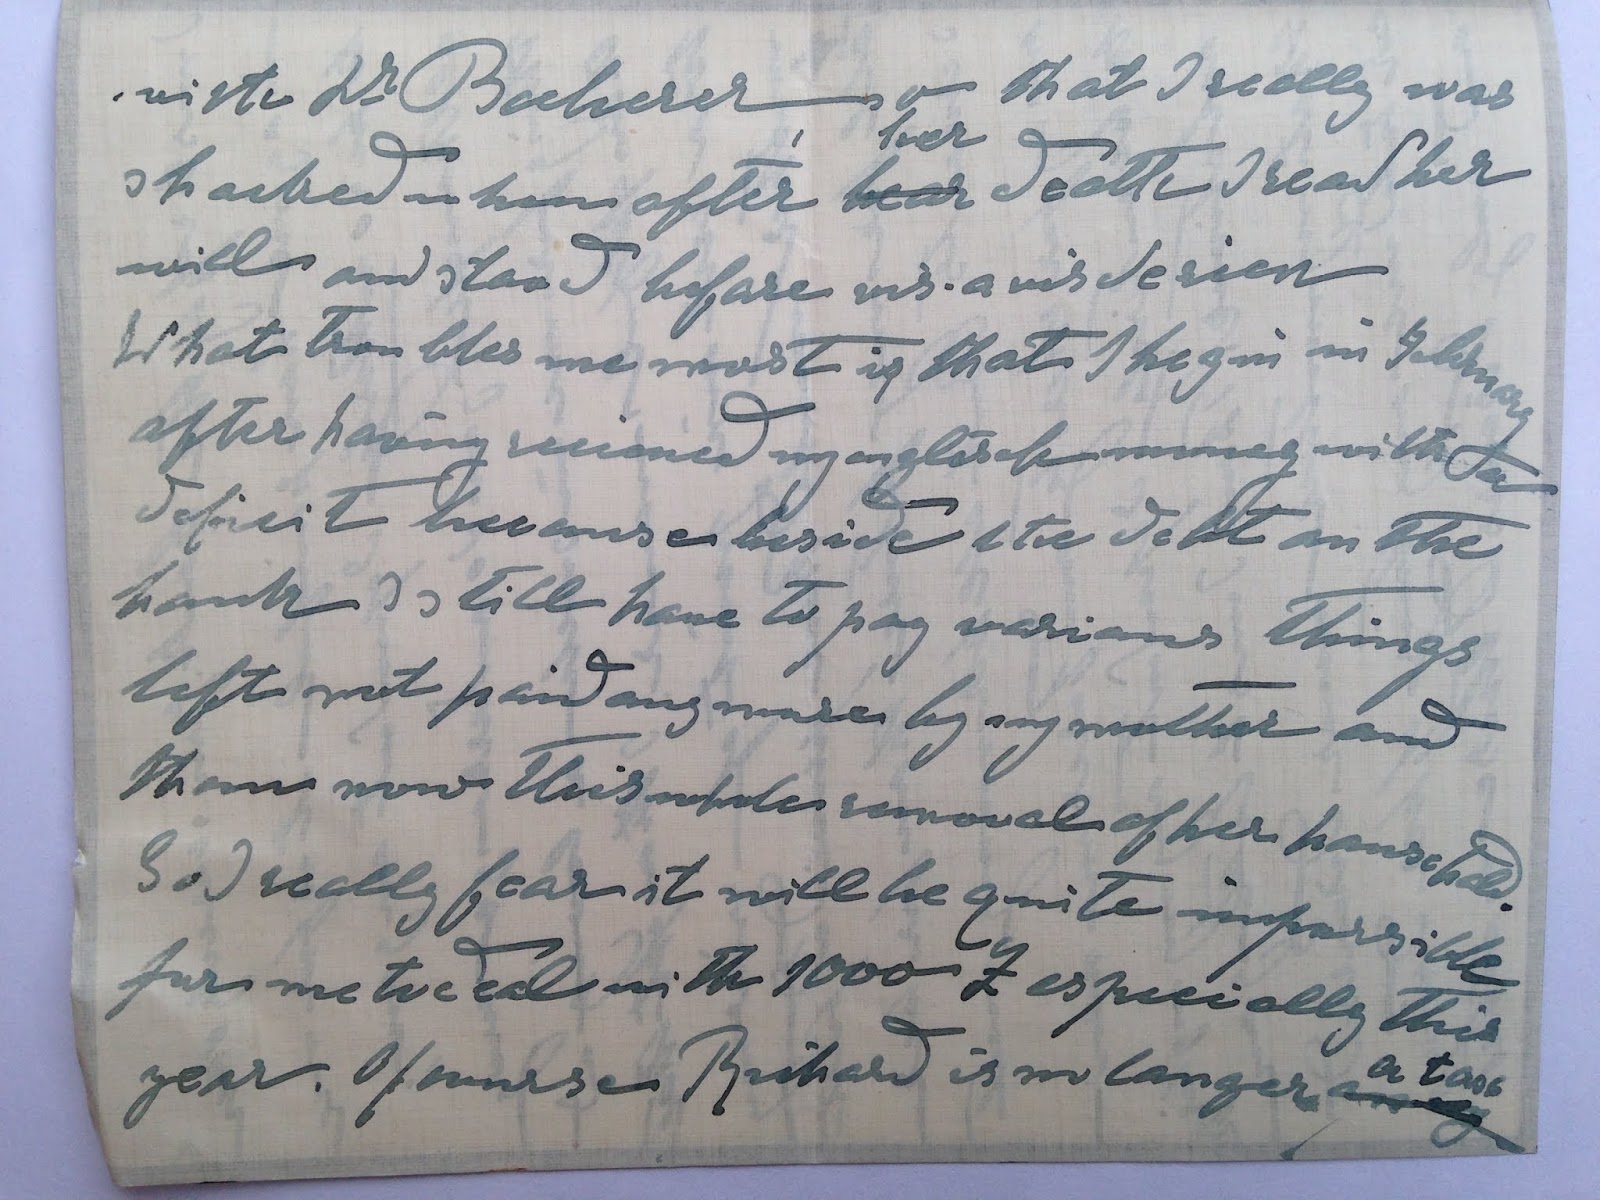 with Dr Bacherer, so that I really was
shocked when after hear her death I read her
will and stood before vis-a vis de rien
What troubles me most is that I begin in February
after having recieved my english money with a
deficit because beside the debt on the
bank I still have to pay various things
left not paid any more by my mother and
than now this whole removal of her household.
So I really fear it will be quite impossible
for me to deal with 1000 £ especially this
year. Of course Richard is no longer a